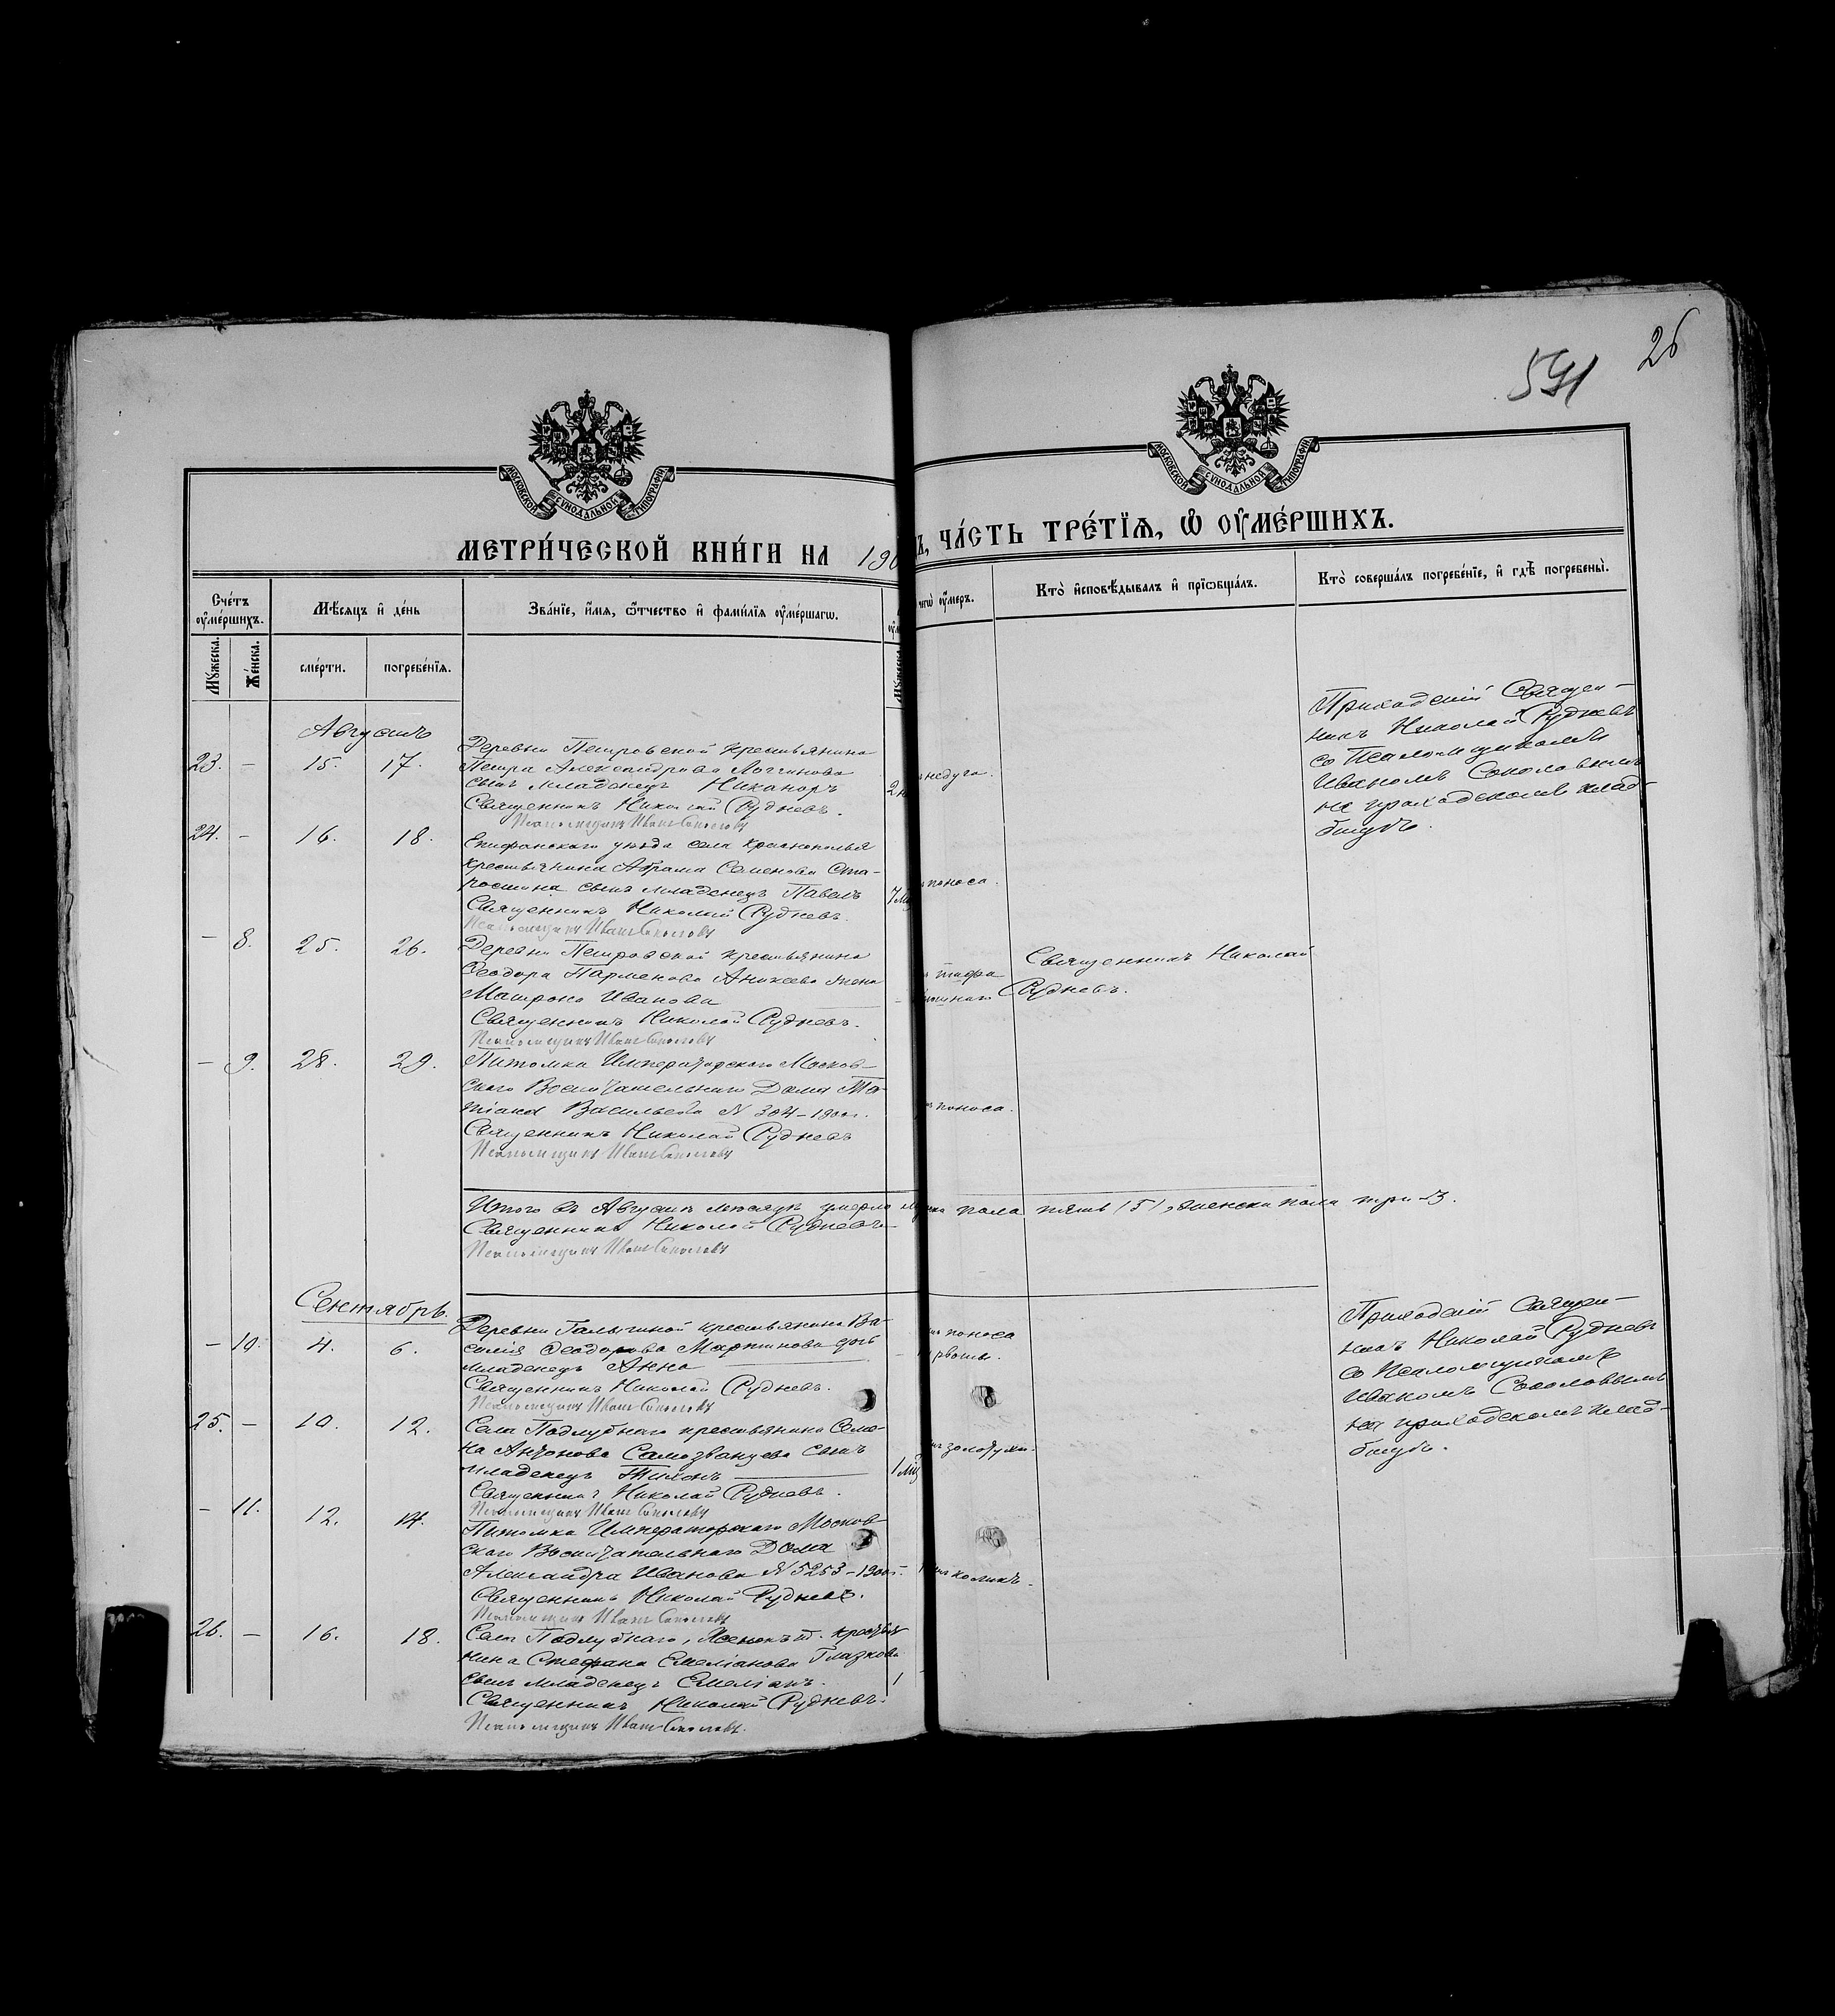 26
591
МОСКОВСКОЙ СУНОДАЛЬНОЙ ТИПОГРАФІИ
МОСКОВСКОЙ СУНОДАЛЬНОЙ ТИПОГРАФІИ
МЕТРИ́ЧЕСКОЙ КНИ́ГИ НА 190
Ъ, ЧА́СТЬ ТРЕ́ТЇѦ, Ѽ ОУ҆МЕ́РШИХЪ.
Сче́тъ оу҆ме́ршихъ.
Мѣ́сяцъ и҆ де́нь
Зва́нїе, и҆́мя, ѻ҆́тчество и҆ фами́лїя оу҆ме́ршагѡ.
чегѡ̀ оу҆́меръ.
Кто̀ и҆сповѣ́дывалъ и҆ прїѡбща́лъ.
Кто̀ соверша́лъ погребе́нїе, и҆ гдѣ̀ погребены̀.
Мꙋ́жеска.
Же́нска.
сме́рти.
погребе́нїя.
Августъ
23. — 15. 17.
Деревни Петровской крестьянина
Петра Александрова Логинова
сынъ младенецъ Никаноръ
Священникъ Николай Рудневъ.
Псаломщикъ Иванъ Соколовъ
2 н
недуга.
Приходскій Священ-
никъ Николай Рудневъ
со Псаломщикомъ
Иваномъ Соколовымъ
на приходскомъ клад-
бищѣ.
24. — 16. 18.
Епифанскаго уѣзда села Краснополья
крестьянина Абрама Семенова Ста-
ростина сынъ младенецъ Павелъ
Священникъ Николай Рудневъ.
Псаломщикъ Иванъ Соколовъ
7 м
поноса.
— 8. 25. 26.
Деревни Петровской крестьянина
Ѳеодора Парменова Аникеева жена
Матрона Иванова
Священникъ Николай Рудневъ.
Псаломщикъ Иванъ Соколовъ
тифа
Священникъ Николай
Рудневъ.
— 9. 28. 29.
Питомка Императорскаго Москов-
скаго Воспитательнаго Дома Та-
тіана Васильева N 304-1900г.
Священникъ Николай Рудневъ
Псаломщикъ Иванъ Соколовъ
поноса.
Итого въ Августѣ мѣсяцѣ умерло мужска пола пять (5), женска пола три (3).
Священникъ Николай Рудневъ
Псаломщикъ Иванъ Соколовъ
Сентябрь.
— 10. 4. 6.
Деревни Галыгиной крестьянина Ва-
силія Ѳеодорова Мартинова дочь
младенецъ Анна
Священникъ Николай Рудневъ.
Псаломщикъ Иванъ Соколовъ
поноса
рвоты.
Приходскій Священ-
никъ Николай Рудневъ
со Псаломщикомъ
Иваномъ Соколовымъ
на приходскомъ клад-
бищѣ.
25. — 10. 12.
Села Подлубнаго крестьянина Семе-
на Антонова Самозванцева сынъ
младенецъ Тихонъ
Священникъ Николай Рудневъ.
Псаломщикъ Иванъ Соколовъ
1 м
золотухи.
— 11. 12. 14.
Питомка Императорскаго Москов-
скаго Воспитательнаго Дома
Александра Иванова N 5253-1900г.
Священникъ Николай Рудневъ.
Псаломщикъ Иванъ Соколовъ
коликъ.
26. — 16. 18.
Села Подлубнаго, крестья-
нина Стефана Емеліанова Глазкова
сынъ младенецъ Емеліанъ.
Священникъ Николай Рудневъ.
Псаломщикъ Иванъ Соколовъ.
1